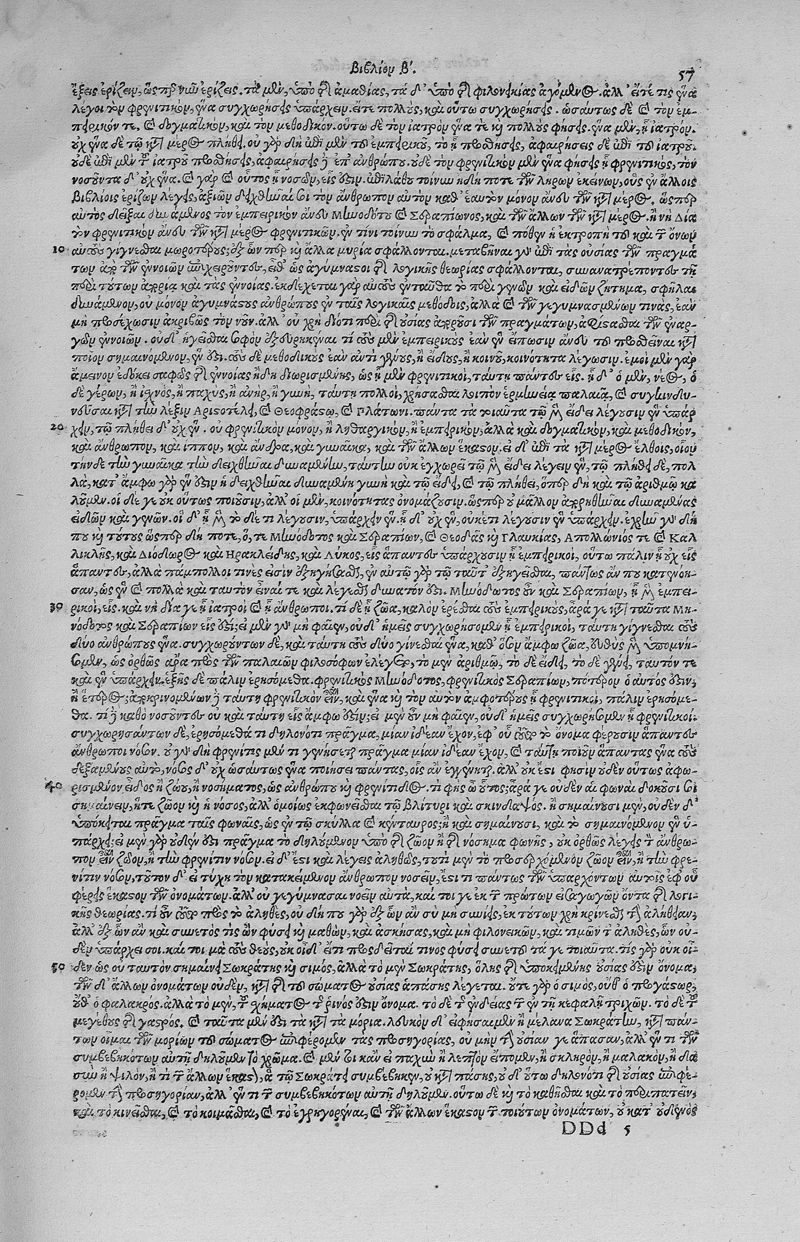 Βιβλίου Β΄. 57
ἕξεις ἐρίζειν, ὥσπερ νῦν ἐρίζεις. τὰ μὲν, ὑπὸ τῆς ἀμαθίας, τὰ δ' ὑπὸ τῆς φιλονεικίας ἀγόμενος. ἀλλ' εἴτε τις ἕνα
λέγοι τὸν φρενιτικὸν, ἕνα συγχωρήσεις ὑπάρχειν. εἴτε πολλοὺς, καὶ οὕτω συγχωρήσεις. ὡσαύτως δὲ καὶ τὸν ἐμ-
πειρικόν τε, καὶ δογματικὸν, καὶ τὸν μεθοδικόν. οὕτω δὲ τὸν ἰατρὸν ἕνα τε καὶ πολλοὺς φήσεις. ἕνα μὲν, ᾗ ἰατρὸν.
οὐχ ἕνα δὲ τῷ κατὰ μέρος πλήθει. οὐ γὰρ δὴ ἐπὶ μὲν τοῦ ἐμπειρικοῦ, τὸ ᾗ προσθήσεις, ἀφαιρήσεις δὲ ἐπὶ τοῦ ἰατροῦ.
οὐδὲ ἐπὶ μὲν τοῦ ἰατροῦ προσθήσεις, ἀφαιρήσεις δὲ ἐπ' ἀνθρώπου. οὐδὲ τὸν φρενιτικὸν μὲν ἕνα φήσεις ᾗ φρενιτικὸς, τὸν
νοσοῦντα δ' οὐχ ἕνα. καὶ γὰρ καὶ οὗτος ᾗ νοσῶν, εἷς ἐστιν. ἐπιλάθου τοίνυν ἤδη ποτὲ τῶν λήρων ἐκείνων, οὓς ἐν ἄλλοις
βιβλίοις ἐρίζων λέγεις, ἀξιῶν δειχθῆναί σοι τὸν ἄνθρωπον αὐτὸν καθ' ἑαυτὸν μόνον ἄνευ τῶν κατὰ μέρος. ὥσπερ
αὐτὸς δεῖξαι δυνάμενος τὸν ἐμπειρικὸν ἄνευ Μηνοδότου καὶ Σεραπίωνος, καὶ τῶν ἄλλων τῶν κατὰ μέρος. ἢ νὴ Δία
τὸν φρενιτικὸν ἄνευ τῶν κατὰ μέρος φρενιτικῶν. ἐν τίνι τοίνυν τὸ σφάλμα, καὶ πόθεν ἡ ἐκτροπὴ τοῦ κατὰ τ' ὄνων
10 αὐτοὺς γίγνεσθαι μωροτέρους; ἐξ ὧν περ καὶ ἄλλα μυρία σφάλλονται. μεταβῆναι γὰρ ἐπὶ τὰς οὐσίας τῶν πραγμά
των ἀπὸ τῶν ἐννοιῶν ἐπιχειροῦντες, εἶθ' ὡς ἀγύμναστοι τῆς λογικῆς θεωρίας σφάλλονται, συνανατρέποντες τῇ
περὶ τούτων ἀπορίᾳ καὶ τὰς ἐννοίας. ἐκδέχεται γὰρ αὐτοὺς ἐνταῦθα τὸ περὶ γενῶν καὶ εἰδῶν ζήτημα, σφῆλαι
δυνάμενον, οὐ μόνον ἀγυμνάστους ἀνθρώπους ἐν ταῖς λογικαῖς μεθόδοις, ἀλλὰ καὶ τῶν γεγυμνασμένων τινὰς, ἐὰν
μὴ προσέχωσιν ἀκριβῶς τὸν νοῦν. ἀλλ' οὐ χρὴ διότι περὶ τῆς οὐσίας ἀποροῦσι τῶν πραγμάτων, ἀφίστασθαι τῶν ἐναρ-
γῶν ἐννοιῶν. οὐδ' ἡγεῖσθαι σοφὸν ἐξευρηκέναι τί τοὺς μὲν ἐμπειρικοὺς ἐὰν ἓν εἴπωσιν ἄνευ τοῦ προσθεῖναι κατὰ
ποῖον σημαινόμενον, ἕν ἐστι. τοὺς δὲ μεθοδικοὺς ἐὰν ἀντὶ γένους, ἢ εἴδους, ἢ κοινοῦ, κοινότητα λέγωσιν. ἐμοὶ μὲν γὰρ
ἄμεινον ἐδόκει σαφῶς τῆς ἐννοίας ἤδη διωρισμένης, ὡς ᾗ μὲν φρενιτικοὶ, ταύτῃ πάντες εἷς. ᾗ δ' ὁ μὲν, νέος, ὁ
δὲ γέρων, ἢ ἰσχνὸς, ἢ παχὺς, ἢ ἀνὴρ, ἢ γυνὴ, ταύτῃ πολλοὶ, χρῆσθαι λοιπὸν ἑρμηνείᾳ παλαιᾷ, καὶ συμφων-
κατὰ τὴν λέξιν Ἀριστοτέλει, καὶ Θεοφράστῳ, καὶ Πλάτωνι. πάντα τὰ τοιαῦτα τῷ μὲν εἴδει λέγουσιν ἓν ὑπάρ
20 χειν, τῷ πλήθει δ' οὐχ ἕν. οὐ φρενιτικὸν μόνον, ἢ ληθαργικὸν, ἢ ἐμπειρικὸν, ἀλλὰ καὶ δογματικὸν, καὶ μεθοδικὸν,
καὶ ἄνθρωπον, καὶ ἵππον, καὶ ἄνδρα, καὶ γυναῖκα, καὶ τῶν ἄλλων ἕκαστον. εἰ δ' ἐπὶ τὰ κατὰ μέρος ἔλθοις, οἷον
τήνδε τὴν γυναῖκα τὴν δειχθῆναι δυναμένην, ταύτην οὐκ ἐγχωρεῖ τῷ μὲν εἴδει λέγειν ἓν, τῷ πλήθει δὲ, πολ
λὰ, κατ' ἄμφω γὰρ ἕν ἐστιν ἡ δειχθῆναι δυναμένη γυνὴ καὶ τῷ εἴδει, καὶ τῷ πλήθει, ὅπερ δὴ καὶ τῷ ἀριθμῷ κα
λοῦμεν. οἱ δέ γε οὐκ οὕτως ποιοῦσιν, ἀλλ' οἱ μὲν, κοινότητας ὀνομάζουσιν. ὥσπερ οὐ μᾶλλον ἀπορηθῆναι δυναμένας
εἰδῶν καὶ γενῶν. οἱ δ' ᾗ μὲν τὸ δέ τι λέγουσιν, ὑπάρχειν ἕν. ᾗ δ' οὐχ ἓν, οὐκέτι λέγουσιν ἓν ὑπάρχειν. ἐχρῆν γὰρ δή
που καὶ τούτους ὥσπερ δή ποτε, ὅ, τε Μηνόδοτος καὶ Σεραπίων, καὶ Θεοδᾶς καὶ Γλαυκίας, Ἀπολλώνιός τε καὶ Καλ
λικλῆς, καὶ Διόδωρος καὶ Ἡρακλείδης, καὶ Λύκος, εἷς ἅπαντες ὑπάρχουσιν ᾗ ἐμπειρικοὶ, οὕτω πάλιν ᾗ οὐχ εἷς
ἅπαντες, ἀλλὰ πάμπολλοι τινές εἰσιν ἐξηγεῖσθαι, ἐν αὐτῷ γὰρ τῷ ταῦτ' ἐξηγεῖσθαι, πάντως ἄν που κατενόη-
σαν, ὡς ἓν καὶ πολλὰ καὶ ταὐτὸν εἶναί τε καὶ λέγεσθαι δυνατόν ἐστι. Μηνόδοτος οὖν καὶ Σεραπίων, ᾗ μὲν ἐμπει-
30 ρικοὶ, εἷς. καὶ νὴ Δία γε ᾗ ἰατροὶ καὶ ᾗ ἄνθρωποι. τί δὲ ᾗ ζῶα, καλὸν ἐρέσθαι τοὺς ἐμπειρικοὺς, ἆρά γε κατὰ ταῦτα Μη-
νόδοτος καὶ Σεραπίων εἷς ἐστι; εἰ μὲν γὰρ μὴ φαῖεν, οὐδ' ἡμεῖς συγχωρήσομεν ᾗ ἐμπειρικοὶ, ταύτῃ γίγνεσθαι τοὺς
δύο ἀνθρώπους ἕνα. συγχωρούντων δὲ, καὶ ταύτῃ τοὺς δύο γίνεσθαι ἕνα, καθ' ὅσον ἄμφω ζῶα, εὐθὺς μὲν ὑπομνή-
σομεν, ὡς ὀρθῶς ἄρα πρὸς τῶν παλαιῶν φιλοσόφων ἐλέγετο, τὸ μὲν ἀριθμῷ, τὸ δὲ εἴδει, τὸ δὲ γένει, ταὐτόν τε
καὶ ἓν ὑπάρχειν. ἑξῆς δὲ πάλιν ἐρησόμεθα. φρενιτικὸς Μηνόδοτος, φρενιτικὸς Σεραπίων, πότερον ὁ αὐτὸς ἐστιν,
ἢ ἕτερος; ἀποκρινομένων δὲ ταύτῃ φρενιτικὸν εἶναι, καὶ ἕνα καὶ τὸν αὐτὸν ἀμφοτέρους ᾗ φρενιτικοὶ, πάλιν ἐρησόμε-
θα. τί δὲ καθὸ νοσοῦντες οὐ καὶ ταύτῃ εἷς ἄμφω ἐστίν; εἰ μὲν οὖν μὴ φαῖεν, οὐδ' ἡμεῖς συγχωρήσομεν ᾗ φρενιτικοί.
συγχωρησάντων δὲ, ἐρησόμεθά τι δηλονότι πρᾶγμα, μίαν ἰδέαν ἔχον, ἐφ' οὗ τὸ ὄνομα φέρουσιν ἅπαντες
ἄνθρωποι νόσον. οὐ γὰρ δὴ φρενῖτις μέν τι γεννήσει πρᾶγμα μίαν ἰδέαν ἔχον, καὶ ταύτῃ ποιοῦν ἅπαντας ἕνα τοὺς
δεξαμένους αὐτὸ, νόσος δ' οὐχ ὡσαύτως ἕνα ποιήσει πάντας, οἷς ἂν ἐγγένηται. ἀλλ' οὐκ ἔστι φησὶν οὐδὲν οὕτως ἀφω-
40 ρισμένον εἶδος ἢ ζώου, ἢ νοσήματος, ὡς ἀνθρώπου καὶ φρενίτιδος. τί φῂς ὦ οὗτος; ἆρά γε οὐδὲν αἱ φωναὶ δοκοῦσί σοι
σημαίνειν, ἥ τε ζῶον καὶ ἡ νόσος, ἀλλ' ὁμοίως ἐκφωνεῖσθαι τῷ βλίτυρι καὶ σκινδαψός. ἢ σημαίνουσι μὲν, οὐδὲν δ'
ὑπόκειται πρᾶγμα ταῖς φωναῖς, ὡς ἐν τῷ σκύλλα καὶ κένταυρος; ἢ καὶ σημαίνουσι, καὶ τὸ σημαινόμενον ἓν ὑ-
πάρχει; εἰ μὲν γὰρ οὐδέν ἐστι πρᾶγμα τὸ δηλούμενον ὑπὸ τῆς ζῶον ἢ τῆς νόσημα φωνῆς, οὐκ ὀρθῶς λέγεις τὸν ἄνθρω-
πον εἶναι ζῶον, ἢ τὴν φρενῖτιν νόσον. εἰ δ' ἔστι καὶ λέγεις ἀληθῶς, τουτὶ μὲν τὸ προσερχόμενον ζῶον εἶναι, ἢ τὴν φρε-
νῖτιν νόσον, τοῦτον δ' εἰ τύχῃ τὸν κατακείμενον ἄνθρωπον νοσεῖν, ἔστι τι πάντως τῶν ὑπαρχόντων αὐτοῖς ἐφ' οὗ
φέρεις ἕκαστον τῶν ὀνομάτων. ἀλλ' οὐ γεγύμνασαι νοεῖν αὐτὰ, καί τοι γε ἐκ τῶν πρώτων εἰσαγωγῶν ὄντα τῆς λογι-
κῆς θεωρίας. τί οὖν τοῦτο πρὸς τὸ ἀληθές, οὐ δή που γὰρ ἐξ ὧν ἂν σὺ μὴ συνιῇς, ἐκ τούτων χρὴ κρίνεσθαι τὴν ἀλήθειαν,
ἀλλ' ἐξ ὧν ἂν καὶ συνετός τις ὢν φύσει καὶ μαθὼν, καὶ ἀσκήσας, καὶ μὴ φιλονεικῶν, καὶ τιμῶν τ' ἀληθὲς, ὧν οὐ-
δὲν ὑπάρχει σοι. καί τοι μὰ τοὺς θεοὺς, οὐκ οἶδ' ἔτι πρὸς δεῖταί τινος φύσει συνετοῦ τά γε τοιαῦτα. τίς γὰρ οὐκ οἶ-
50 δεν ὡς οὐ ταὐτὸν σημαίνει Σωκράτης καὶ σιμὸς, ἀλλὰ τὸ μὲν Σωκράτης, ὅλης τῆς ὑποκειμένης οὐσίας ἐστὶν ὄνομα,
τῶν δ' ἄλλων ὀνομάτων οὐδὲν, κατὰ τοῦ σώματος οὐσίας ἁπάσης λέγεται. οὔτε γὰρ ὁ σιμὸς, οὔθ' ὁ προγάστωρ,
οὔθ' ὁ φαλακρός. ἀλλὰ τὸ μὲν, τοῦ σχήματος τῆς ῥινὸς ἐστιν ὄνομα. τὸ δὲ τῆς ἐνδείας τῶν ἐν τῇ κεφαλῇ τριχῶν. τὸ δὲ τοῦ
μεγέθους τῆς γαστρός. καὶ ταῦτα μὲν ἐστι τὰ κατὰ τὰ μόρια. λευκὸν δ' εἰ φήσαιμεν ἢ μέλανα Σωκράτην, κατὰ πάν-
των οἶμαι τῶν μορίων τοῦ σώματος ἐπιφέρομεν τὰς προσηγορίας, οὐ μὴν τὴν οὐσίαν γε ἅπασαν, ἀλλ' ἕν τι τῶν
συμβεβηκότων αὐτῇ δηλοῦμεν τὸ χρῶμα. καὶ μέν τοι κἂν εἰ παχὺν ἢ λεπτὸν εἴπομεν, ἢ σκληρὸν, ἢ μαλακὸν, ἢ δα
σὺν ἢ ψιλὸν, ἤ τι τῶν ἄλλων ἕκαστα, ἃ τῷ Σωκράτει συμβέβηκεν, οὐ κατὰ πάσης, οὐδ' οὕτω δηλονότι τῆς οὐσίας ἐπιφέ-
ρομεν τὴν προσηγορίαν, ἀλλ' ἕν τι τῶν συμβεβηκότων αὐτῇ δηλοῦμεν. οὕτω δὲ καὶ τὸ καθῆσθαι καὶ τὸ περιπατεῖν,
καὶ τὸ κινεῖσθαι, καὶ τὸ κοιμᾶσθαι, καὶ τὸ ἐγρηγορέναι, καὶ τῶν ἄλλων ἕκαστον τῶν τοιούτων ὀνομάτων, οὐ κατ' οὐδενὸς
DDd 5